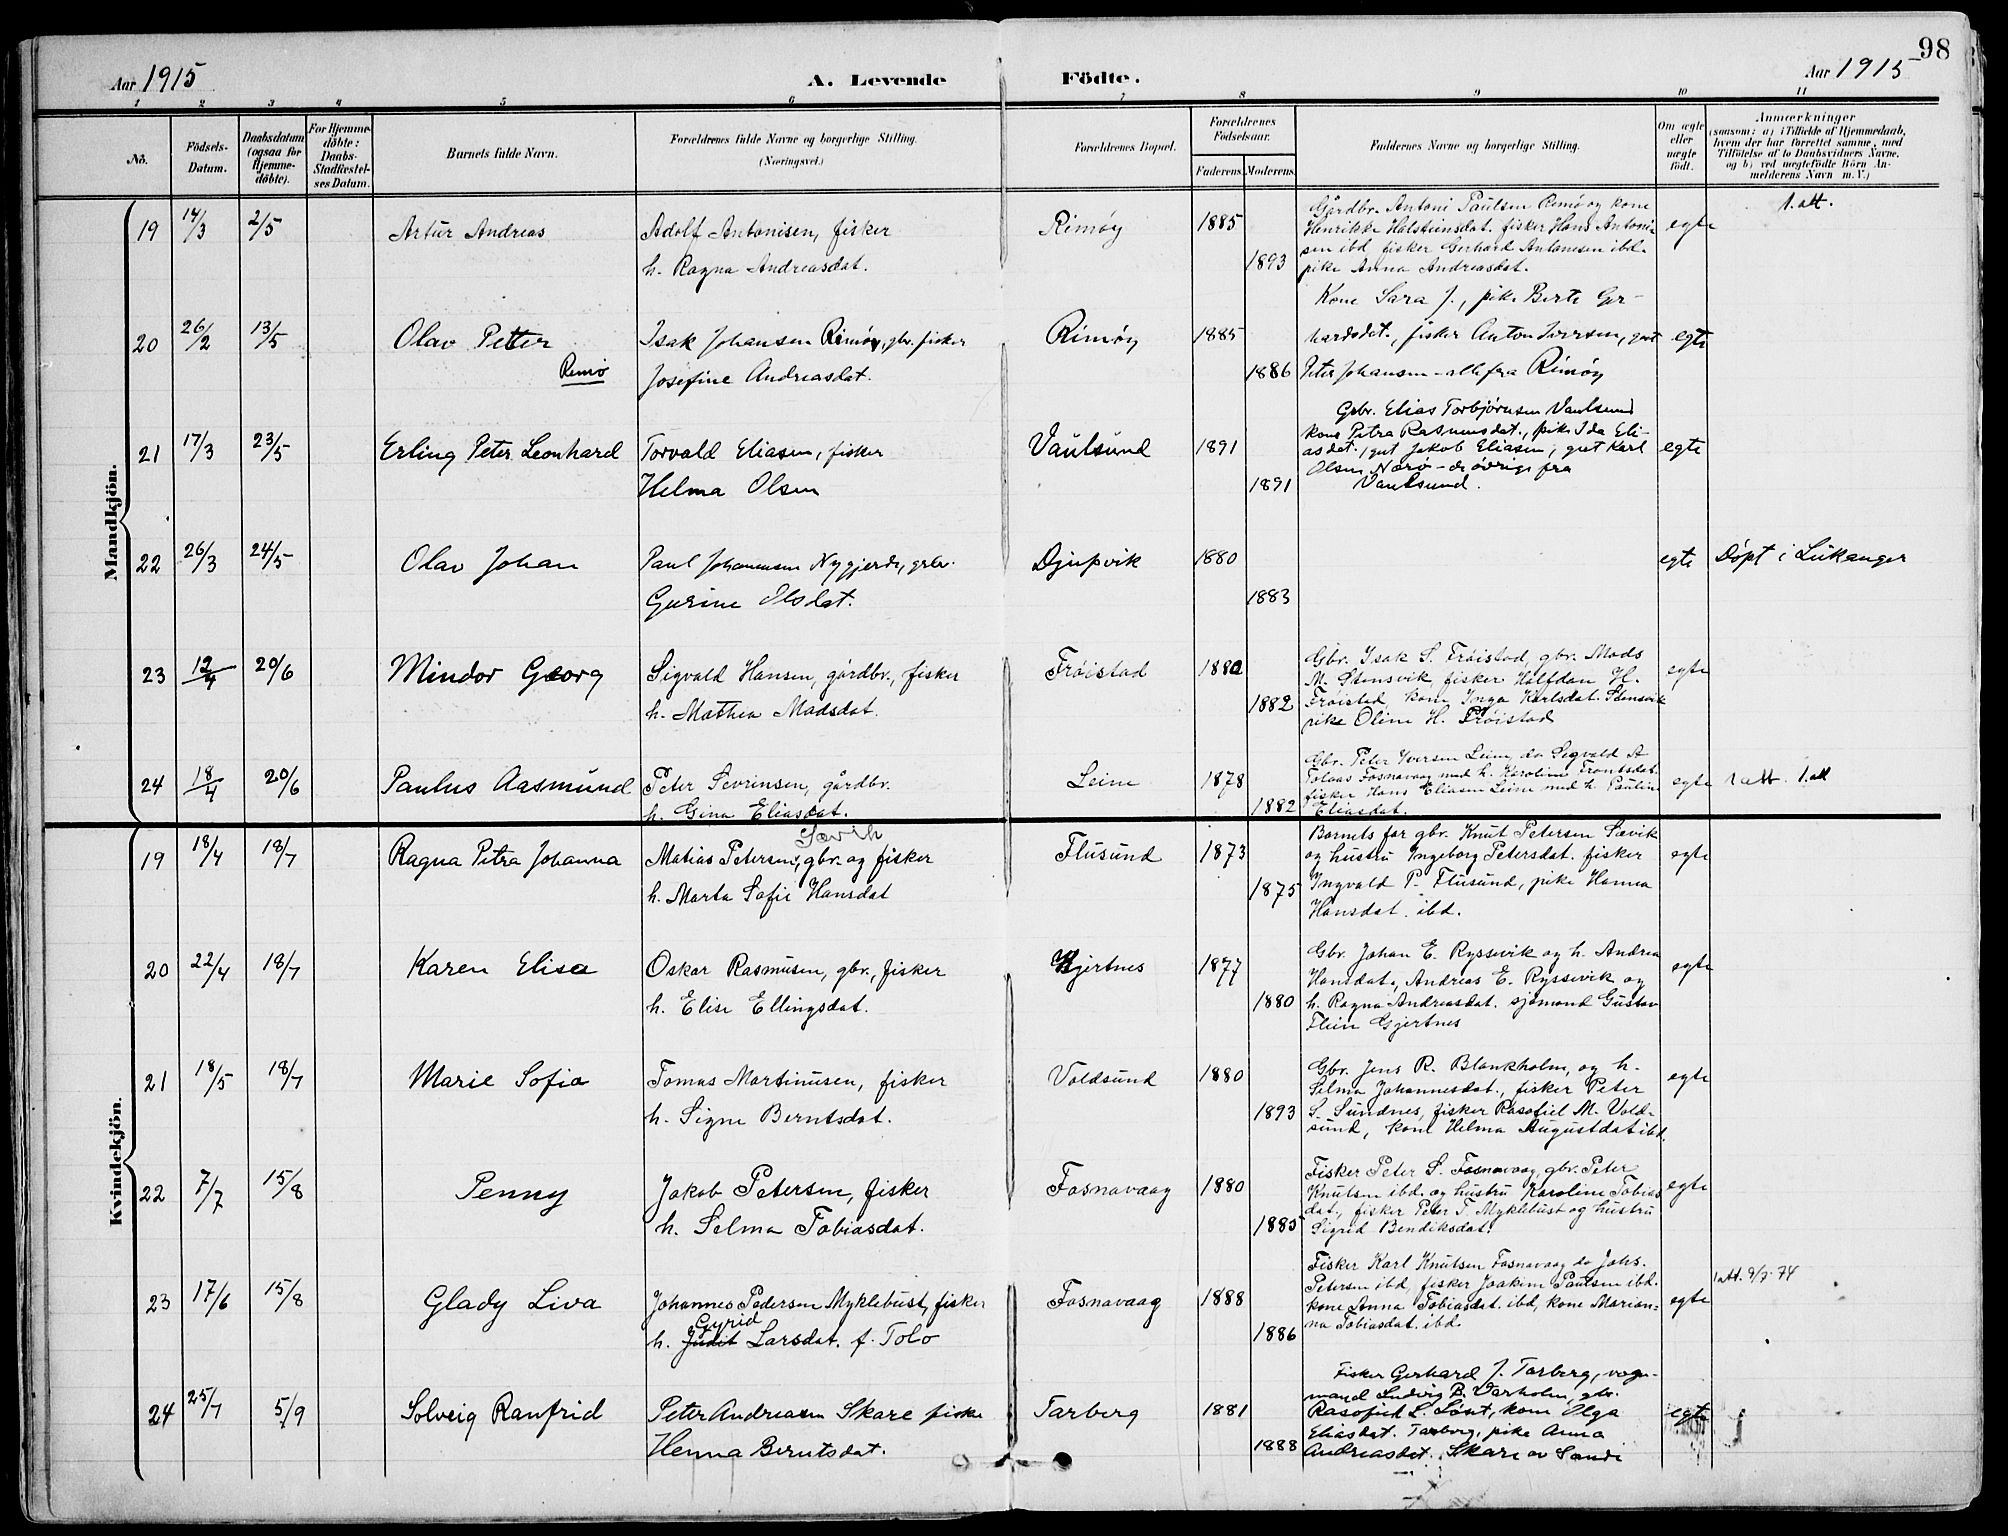 98
Aar 1915 A. Levende Födte. Aar 1915
1 2 3 4 5 6 7 8 9 10 11
Nô. Födsels-Datum. Daabsdatum (ogsaa for Hjemme-döbte). For Hjemme-döbte: Daabs-Stadfæstel-ses Datum. Barnets fulde Navn. Forældrenes fulde Navne og borgerlige Stilling. (Næringsvei.) Forældrenes Bopæl. Forældrenes Födselsaar. Faderens. Moderens. Faddernes Navne og borgerlige Stilling. Om ægte eller uægte födt. Anmærkninger (saasom: a) i Tilfælde af Hjemmedaab, hvem der har forrettet samme, med Tilföielse af to Daabsvidners Navne, og b) ved uægtefödte Börn Anmelderens Navn m. V.)
Mandkjön.
19 14/3 2/5 Artur Andreas Adolf Antonisen, fisker Rimøy 1885 egte 1. att.
h. Ragna Andreasdat. 1893
Gårdbr. Antoni Paulsen Remøy og kone
Henrikke Halsteinsdat. fisker Hans Antoni-
sen ibd fisker Gerhard Antonisen ibd.
pike Anna Andreasdat.
20 26/2 13/5 Olav Petter Isak Johansen Rimøy, gbr. fisker Rimøy 1885 egte
Remø Josefine Andreasdat. 1886
Kone Sara J., pike Berte Ger-
hardsdat., fisker Anton Iversen, gut
Peter Johansen - alle fra Rimøy
21 17/3 23/5 Erling Peter Leonhard Torvald Eliasen, fisker Vaulsund 1891 egte
Helma Olsen 1891
Grbr. Elias Torbjörnsen Vaulsund
kone Petra Rasmusdat., pike Ida Eli-
asdat., gut Jakob Eliasen, gut Karl
Olsen Nærø - de øvrige fra
Vaulsund.
22 26/3 24/5 Olav Johan Paul Johannesen Nygjerde, grbr. Djupvik 1880 egte Døpt i Likanger
Gurine Olsdat. 1883
23 12/4 20/6 Mindor Georg Sigvald Hansen, gårdbr., fisker Frøistad 1880 egte
h. Mathea Madsdat. 1882
Gbr. Isak S. Frøistad, gbr. Mads
M. Stensvik, fisker Halfdan H.
Frøistad, kone Inga Karlsdat. Stensvik
pike Oline H. Frøistad
24 18/4 20/6 Paulus Aasmund Peter Sevrinsen, gårdbr. Leine 1878 egte 1 att. 1. att
h. Gina Eliasdat. 1882
Gbr. Peter Iversen Leine, do Sigvald A
Tolaas Fosnavaag med h. Karoline Frontsdat.
fisker Hans Eliasen Leine med h. Pauline
Eliasdat.
Kvindekjön.
Sævik
19 18/4 18/7 Ragna Petra Johanna Matias Petersen, gbr. og fisker Flusund 1873 egte
h. Marta Sofie Hansdat 1875
Barnets far gbr. Knut Petersen Sævik
og hustru Ingeborg Petersdat. fisker
Ingvald P. Flusund, pike Hanna
Hansdat. ibd.
20 22/4 18/7 Karen Elise Oskar Rasmusen, gbr., fisker Gjertnes 1877 egte
h. Elise Ellingsdat. 1880
Gbr. Johan E. Ryssevik og h. Andrea
Hansdat., Andreas E. Ryssevik og
h. Ragna Andreasdat. sjømand Gustav
Flein Gjertnes
21 18/5 18/7 Marie Sofia Tomas Martinusen, fisker Voldsund 1880 egte
h. Signe Berntsdat. 1893
Gbr. Jens R. Blankholm, og h.
Selma Johannesdat., fisker Peter
S. Sundnes, fisker Rasofiel M. Vold-
sund, kone Helma Augustdat ibd.
22 7/7 15/8 Penny Jakob Petersen, fisker Fosnavaag 1880 egte
h. Selma Tobiasdat. 1885
Fisker Peter S. Fosnavaag, gbr. Peter
Knutsen ibd. og hustru Karoline Tobias
dat., fisker Peter T. Myklebust og hustru
Sigrid Bendiksdat.
23 17/6 15/8 Glady Liva Johannes Pedersen Myklebust, fisker Fosnavaag 1888 egte 1 att. 9/7-74
Gyrid
h. Judit Larsdat. f. Tolo 1886
Fisker Karl Knutsen Fosnavaag do Johs.
Petersen ibd, fisker Joakim Paulsen ibd.
kone Anna Tobiasdat. ibd, kone Marian-
na Tobiasdat. ibd.
24 25/7 5/9 Solveig Ranfrid Peter Andreasen Skare fisker Tarberg 1881 egte
Henna Berntsdat. 1888
Fisker Gerhard J. Tarberg, vogn-
mand Ludvig B. Varholm, gbr.
Rasofiel L. Løset, kone Olga
Eliasdat. Tarberg, pike Anna
Andreasdat. Skare av Sande